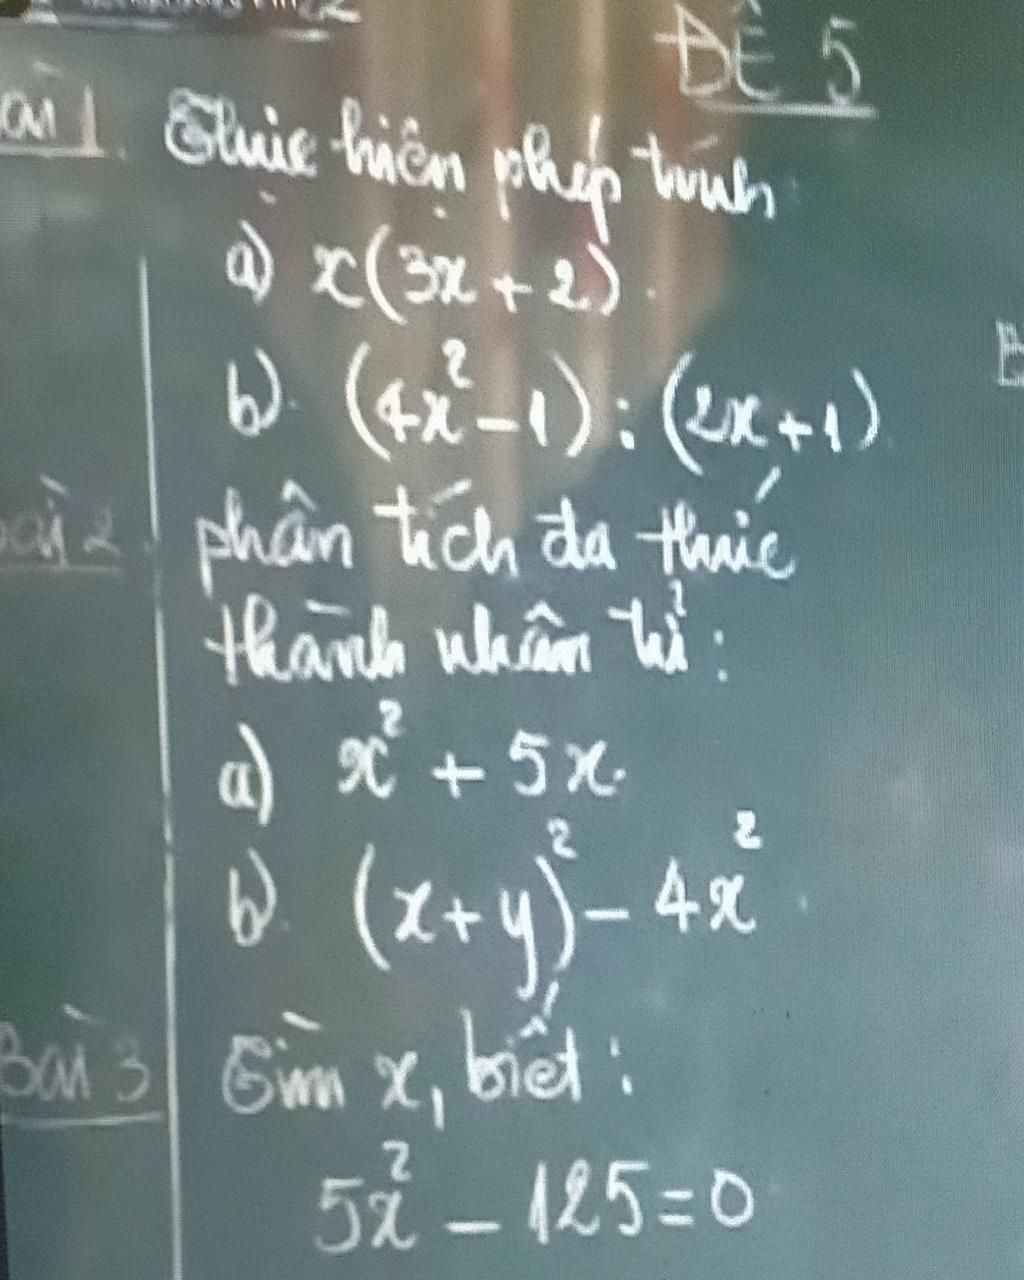 ĐỀ 5
Bài 1 Thực hiện phép tính
a) x(3x + 2).
b). (4x² - 1) : (2x + 1)
Bài 2. phân tích đa thức
thành nhân tử :
a) x² + 5x.
b). (x + y)² - 4x².
Bài 3 Tìm x, biết :
5x² - 125 = 0